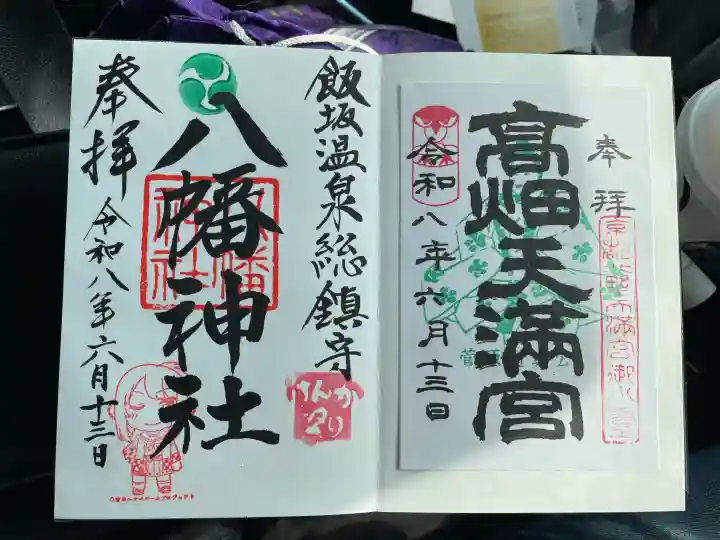 奉拝
髙畑天満宮
令和八年六月十三日
飯坂温泉総鎮守
けんか
祭り
八幡神社
奉拝
令和八年六月十三日